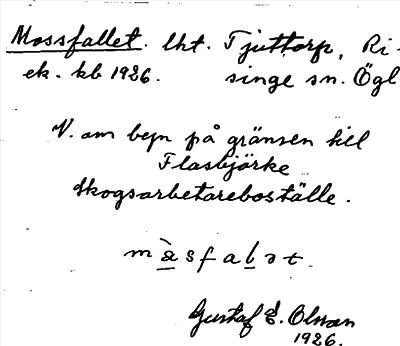 Mossfallet. lht. Tjuttorp, Ri-
ek. kb 1926. singe sn. Ögl
V. om byn på gränsen till
Flasbjörke
Skogsarbetareboställe.
m a s f a l ə t
Gustaf E. Olsson
1926.